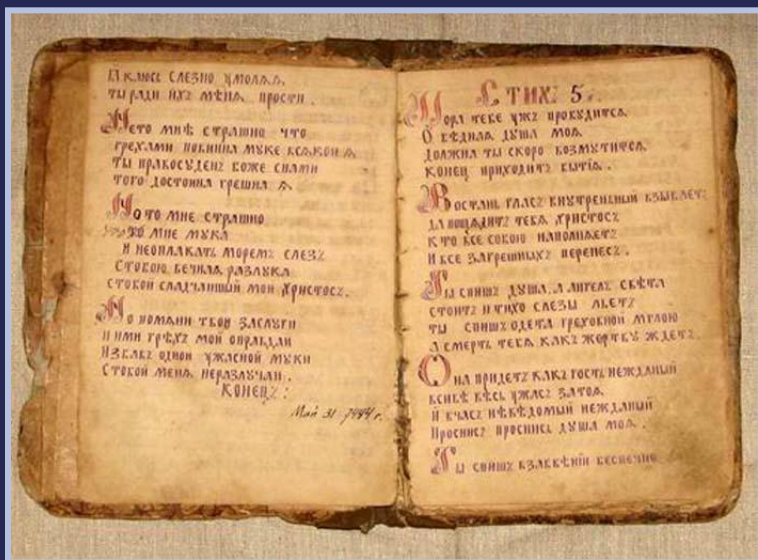 И клюсь слезно умоляя
ты ради ихъ мѣня прости.
Не то мнѣ страшно что
грехами повинна муке всякои я
Ты правосуденъ боже снами
того достоина грешная
Но то мне страшно
то мне мука
и неоплакать моремъ слезъ
Стобою вечная разлука
стобой сладчаишый мои христосъ.
Но помяни твои заслуги
и ими грѣхъ мой оправдаи
Избавь одной ужасной муки
Стобой меня неразлучаи.
Конецъ:
Май 31 7444 г.
Стихъ 5.
Пора тебе ужъ пробудится
О бѣдная душа моя
должна ты скоро возмутится
конец приходитъ бытія.
Востань гласъ внутренный взываетъ
да пощадитъ тебя христосъ
кто все собою наполняетъ
И все загрешныхъ перенес.
Ты спишь душа. а ангелъ свѣта
стоитъ и тихо слезы льетъ
ты спишь одета греховной мглою
а смерть тебя какъ жертву ждетъ.
Она придетъ какъ гость нежданый
всибѣ весь ужасъ затоя.
И вчасъ невѣдомый нежданый
Проснись проснись душа моя.
Ты спишь взабвѣніи беспечно